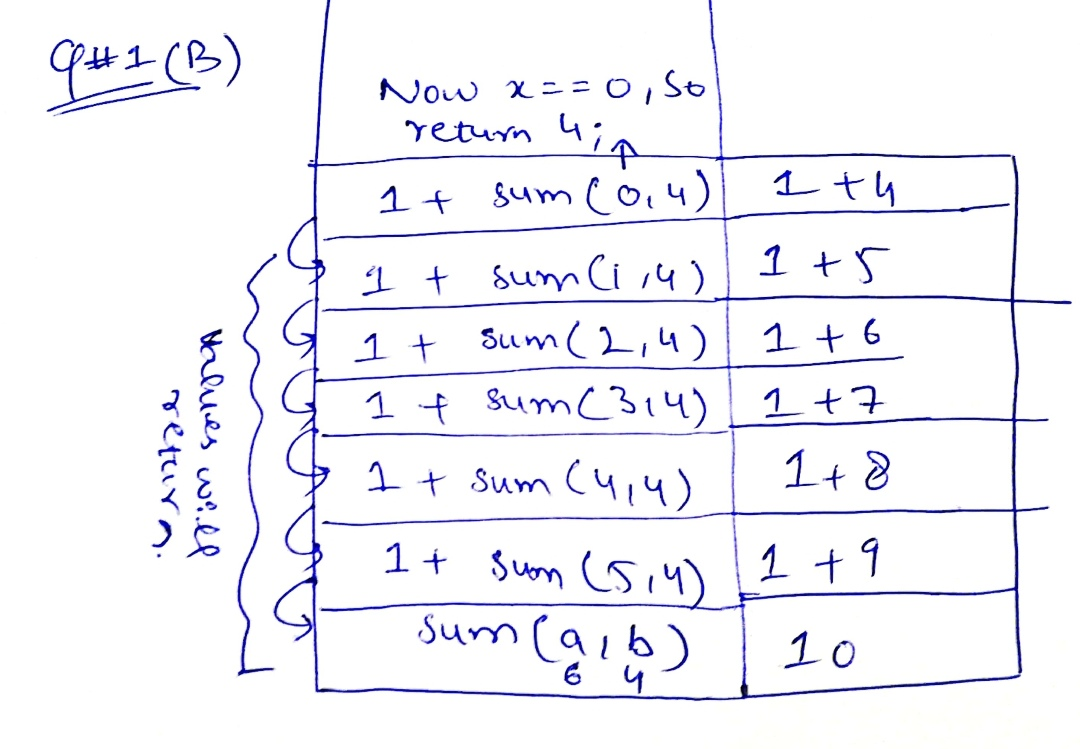 Q#1(B)
Now x==0, So
return 4;
1 + sum(0,4) 1 + 4
1 + sum(1,4) 1 + 5
1 + sum(2,4) 1 + 6
1 + sum(3,4) 1 + 7
1 + sum(4,4) 1 + 8
1 + sum(5,4) 1 + 9
sum(a,b) 10
6 4
Values will
return.